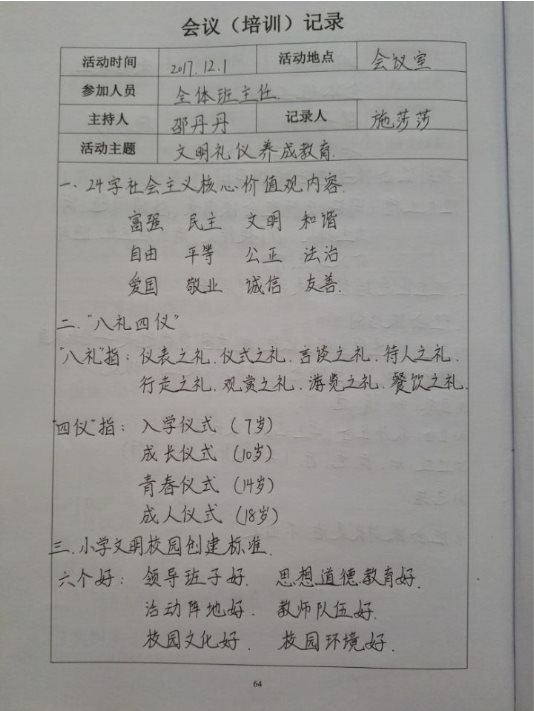 会议（培训）记录
活动时间 2017.12.1 活动地点 会议室
参加人员 全体班主任
主持人 邵丹丹 记录人 施莎莎
活动主题 文明礼仪养成教育.
一.24字社会主义核心价值观内容.
富强 民主 文明 和谐
自由 平等 公正 法治
爱国 敬业 诚信 友善.
二."八礼四仪"
"八礼"指：仪表之礼.仪式之礼.言谈之礼.待人之礼.
行走之礼.观赏之礼.游览之礼.餐饮之礼.
"四仪"指：入学仪式（7岁）
成长仪式（10岁）
青春仪式（14岁）
成人仪式（18岁）
三.小学文明校园创建标准.
六个好：领导班子好. 思想道德教育好.
活动阵地好. 教师队伍好.
校园文化好. 校园环境好.
64